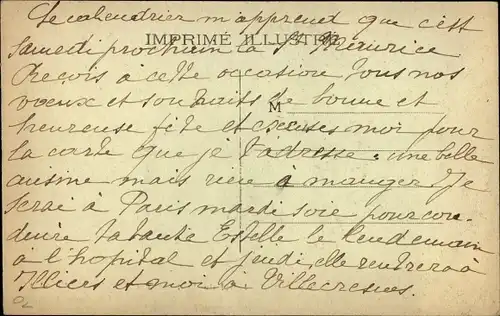 Le calendrier m'apprend que c'est
samedi prochain la St Maurice
IMPRIMÉ ILLUSTRÉ
Reçois à cette occasion tous nos
vœux et souhaits de bonne et
M
heureuse fête et excuses moi pour
la carte que je t'adresse : une belle
cuisine mais rien à manger. Je
serai à Paris mardi soir pour con-
duire ta tante Estelle le lendemain
à l'hopital et jeudi elle rentrera à
et moi à Villecresnes.